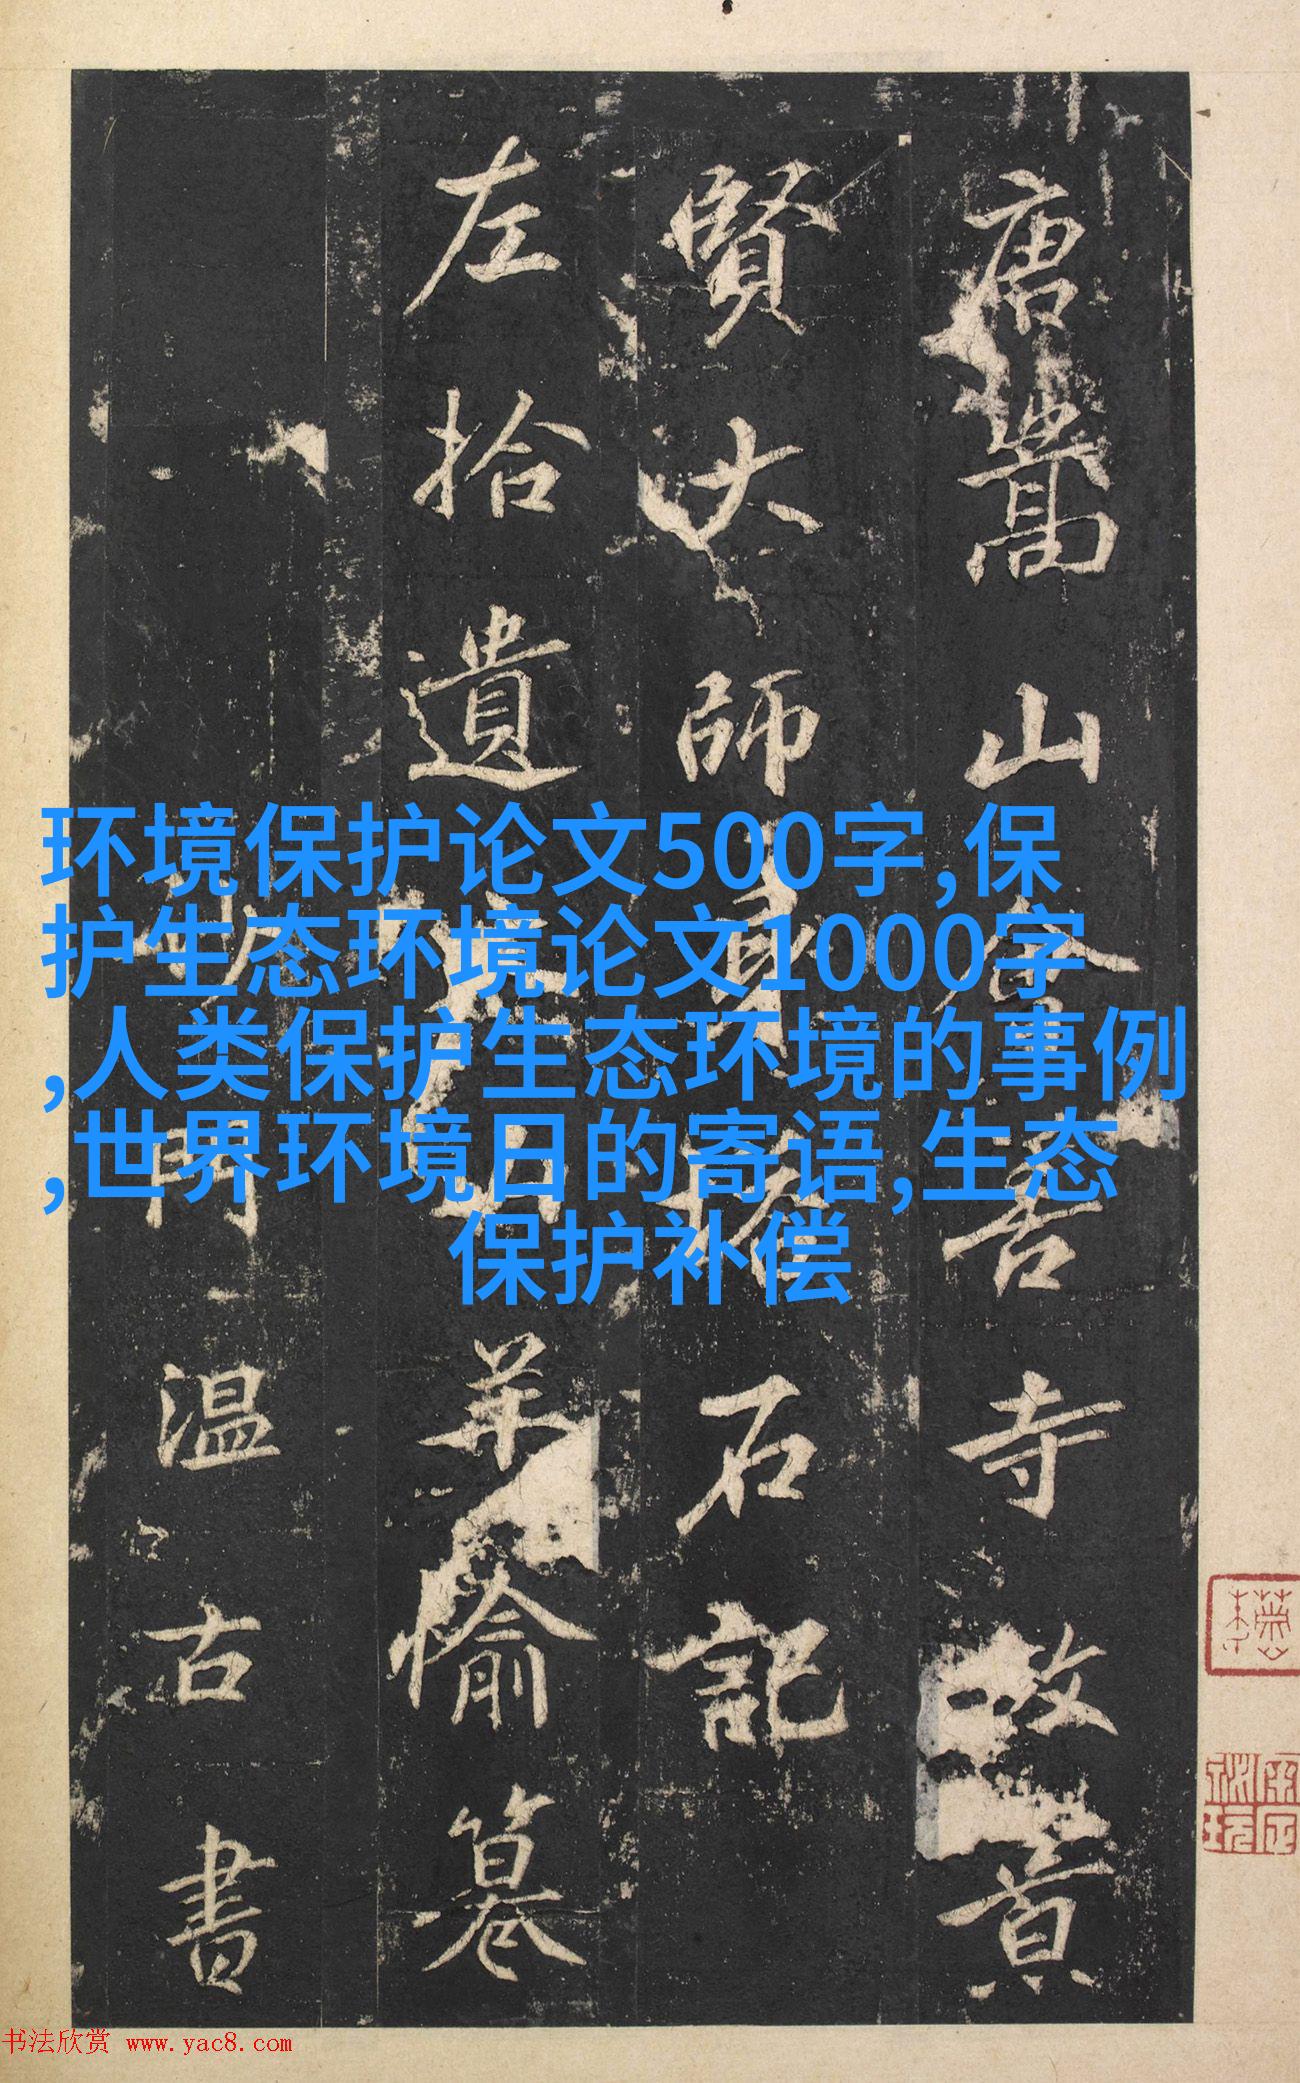 唐嵩山會善寺故景
賢大師身塔石記
左拾遺太山羊愉篹
沙門溫古書
环境保护论文500字,保
护生态环境论文1000字
,人类保护生态环境的事例
,世界环境日的寄语,生态
保护补偿
书法欣赏 www.yac8.com